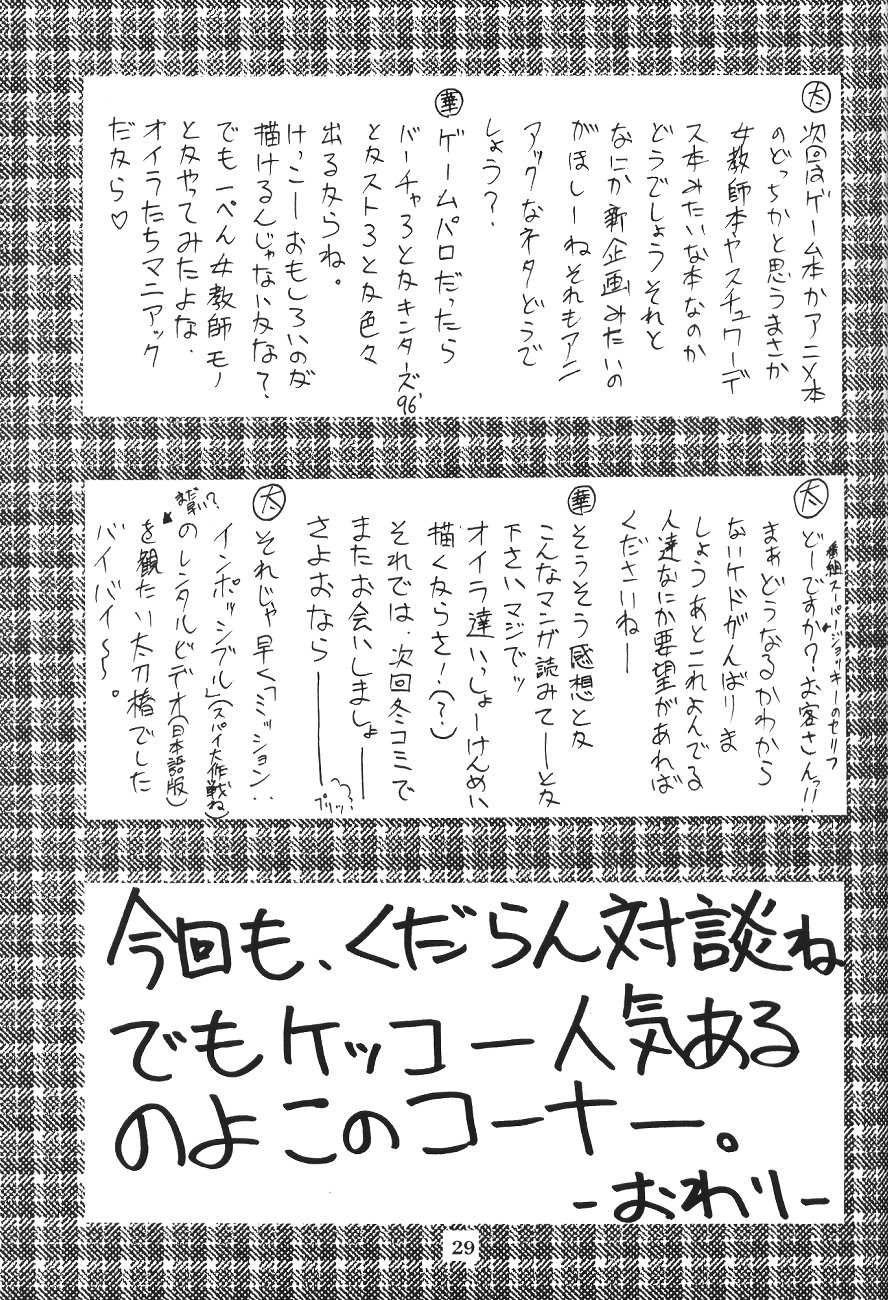 太
次回はゲーム本かアニメ本
のどっちかと思うまさか
女教師本やスチュワーデ
ス本みたいな本なのか
どうでしょうそれと
なにか新企画みたいの
がほしーねそれもアニ
アックなネタどうで
しょう?
華
ゲームパロだったら
バーチャ3とかキンターズ96'
とかスト3とか色々
出るからね。
けっこーおもしろいのが
描けるんじゃないかな?
でも一ぺん女教師モノ
とかやってみたよな.
オイラたちマニアック
だから♡
太
番組スーパージョッキーのセリフ
どーですか?お客さんっ!!
まぁどうなるかわから
ないケドがんばりま
しょうあとこれよんでる
人達なにか要望があれば
くださいねー
華
そうそう感想とか
こんなマンガ読みてーとか
下さいマジでッ
オイラ達いっしょーけんめい
描くからさ!(?)
それでは、次回冬コミで
またお会いしましょー
さよおなら――
プリッ
太
それじゃ早く「ミッション:
インポッシブル」(スパイ大作戦ね)
まだ早い?
のレンタルビデオ(日本語版)
を観たい太刀椿でした
バイバイ〜。
今回も、くだらん対談ね
でもケッコー人気ある
のよこのコーナー。
-おわり-
29